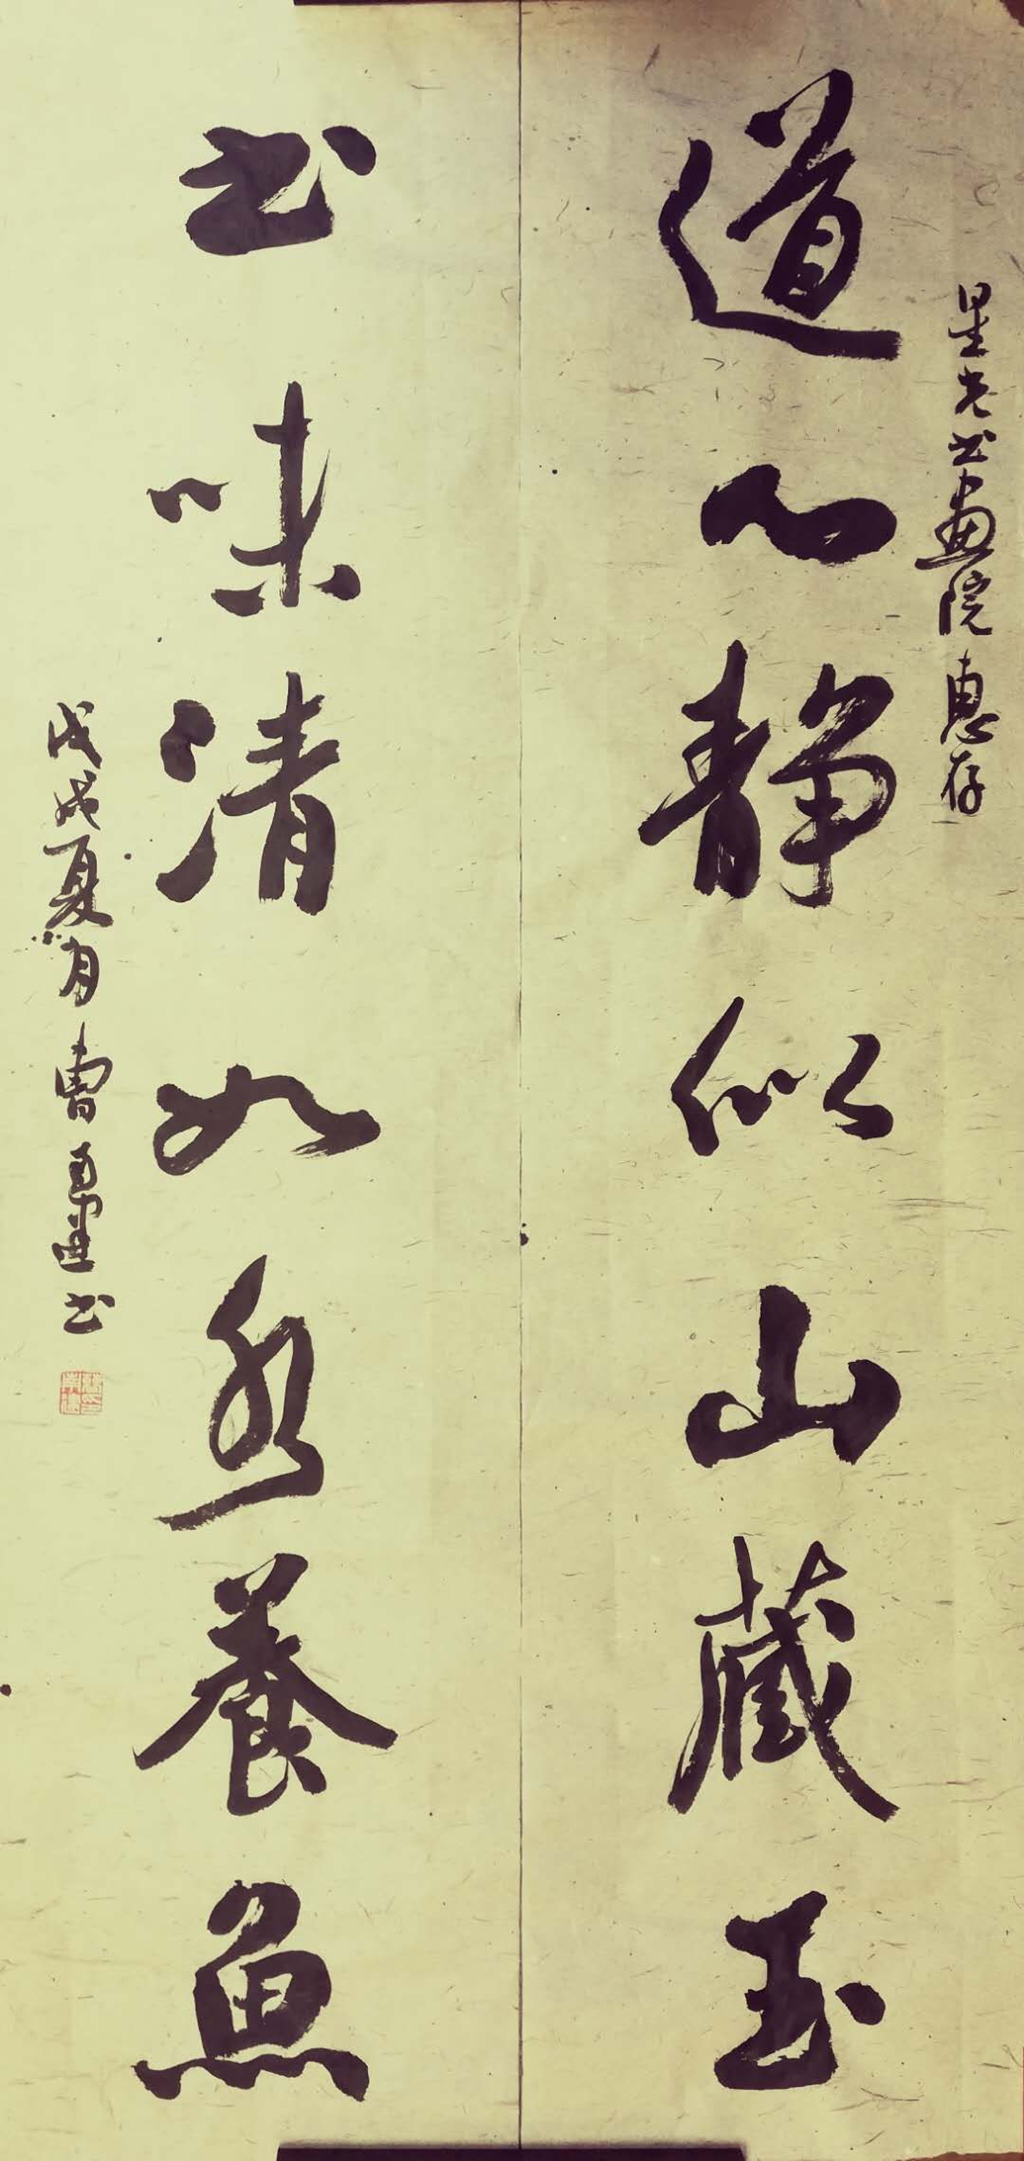 星光书画院惠存
道心静似山藏玉
书味清如水养鱼
戊戌夏月曹 建书